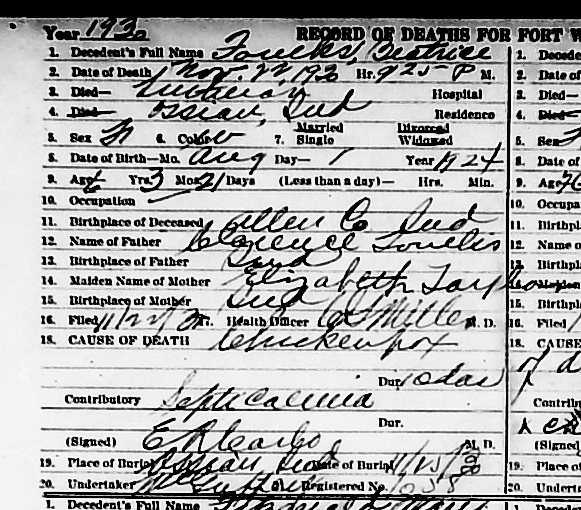 Year 1930 RECORD OF DEATHS FOR FORT W
1. Decedent's Full Name Foucks, Beatrice
2. Date of Death Nov. 22, 1930 Hr. 9 25 P M.
3. Died— Lutheran Hospital
4. Died— Ossian, Ind Residence
5. Sex F 6. Color W 7. Married Single Divorced Widowed
8. Date of Birth—Mo. Aug Day— 1 Year 1924
9. Age 6 Yrs. 3 Mos. 21 Days (Less than a day)— Hrs. Min.
10. Occupation
11. Birthplace of Deceased Allen Co Ind
12. Name of Father Clarence
13. Birthplace of Father Ind
14. Maiden Name of Mother Elizabeth
15. Birthplace of Mother Ind
16. Filed 11/22/30 Health Officer Miller M. D.
18. CAUSE OF DEATH Chickenpox
Dur. 10 das
Contributory Septicaemia
Dur.
(Signed) M. D.
19. Place of Burial Ossian, Ind Date of Burial
20. Undertaker Registered No.
1. Decedent's Full Name
1. Decede
2. Date of
3. Died—
4. Died—
5. Sex
8. Date of
9. Age
10. Occupa
11. Birthp
12. Name o
13. Birthpl
14. Maiden
15. Birthpl
16. Filed
18. CAUSE
Contrib
(Signed
19. Place o
20. Undert
1. Decede